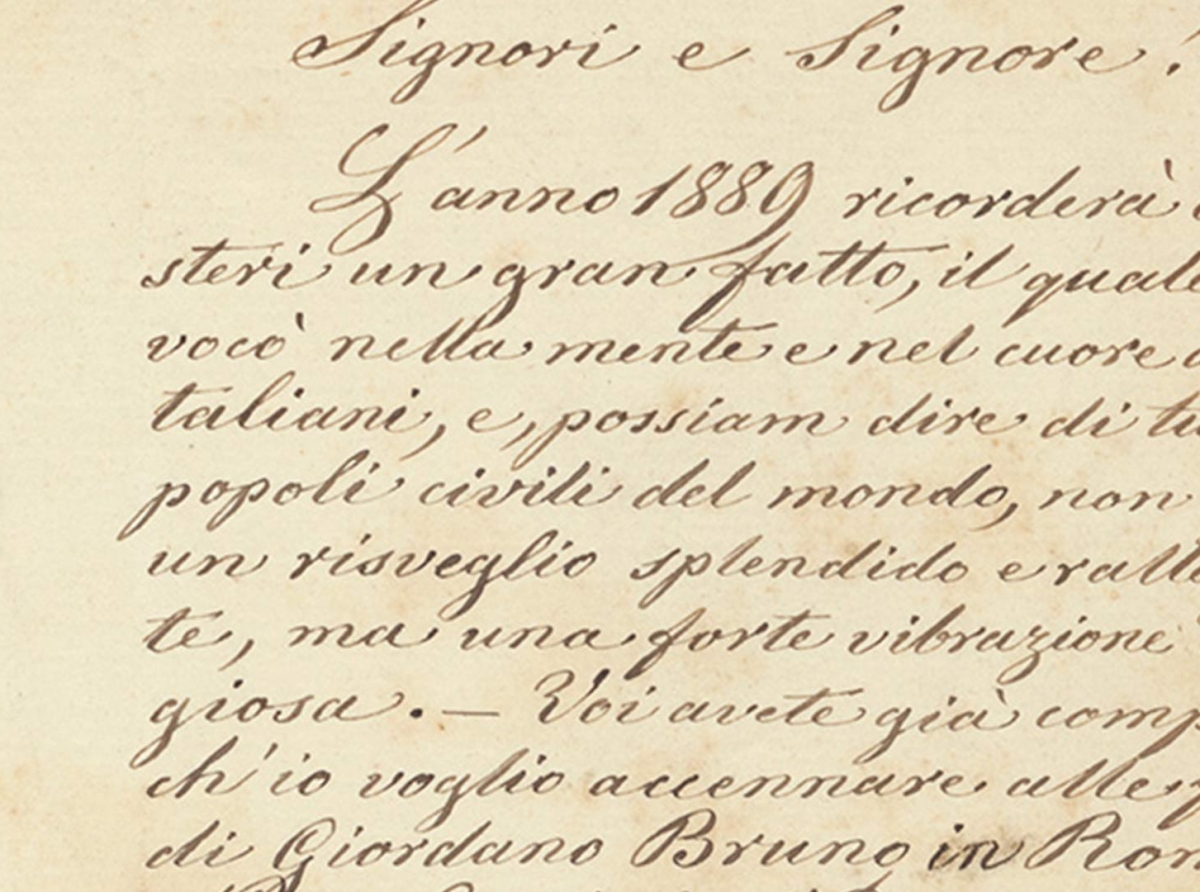 Signori e Signore!
L'anno 1889 ricorderà
steri un gran fatto, il quale
vocò nella mente e nel cuore
taliani, e, possiam dire di tu
popoli civili del mondo, non
un risveglio splendido e ralle
te, ma una forte vibrazione
giosa. — Voi avete già comp
ch'io voglio accennare alle
di Giordano Bruno in Rom